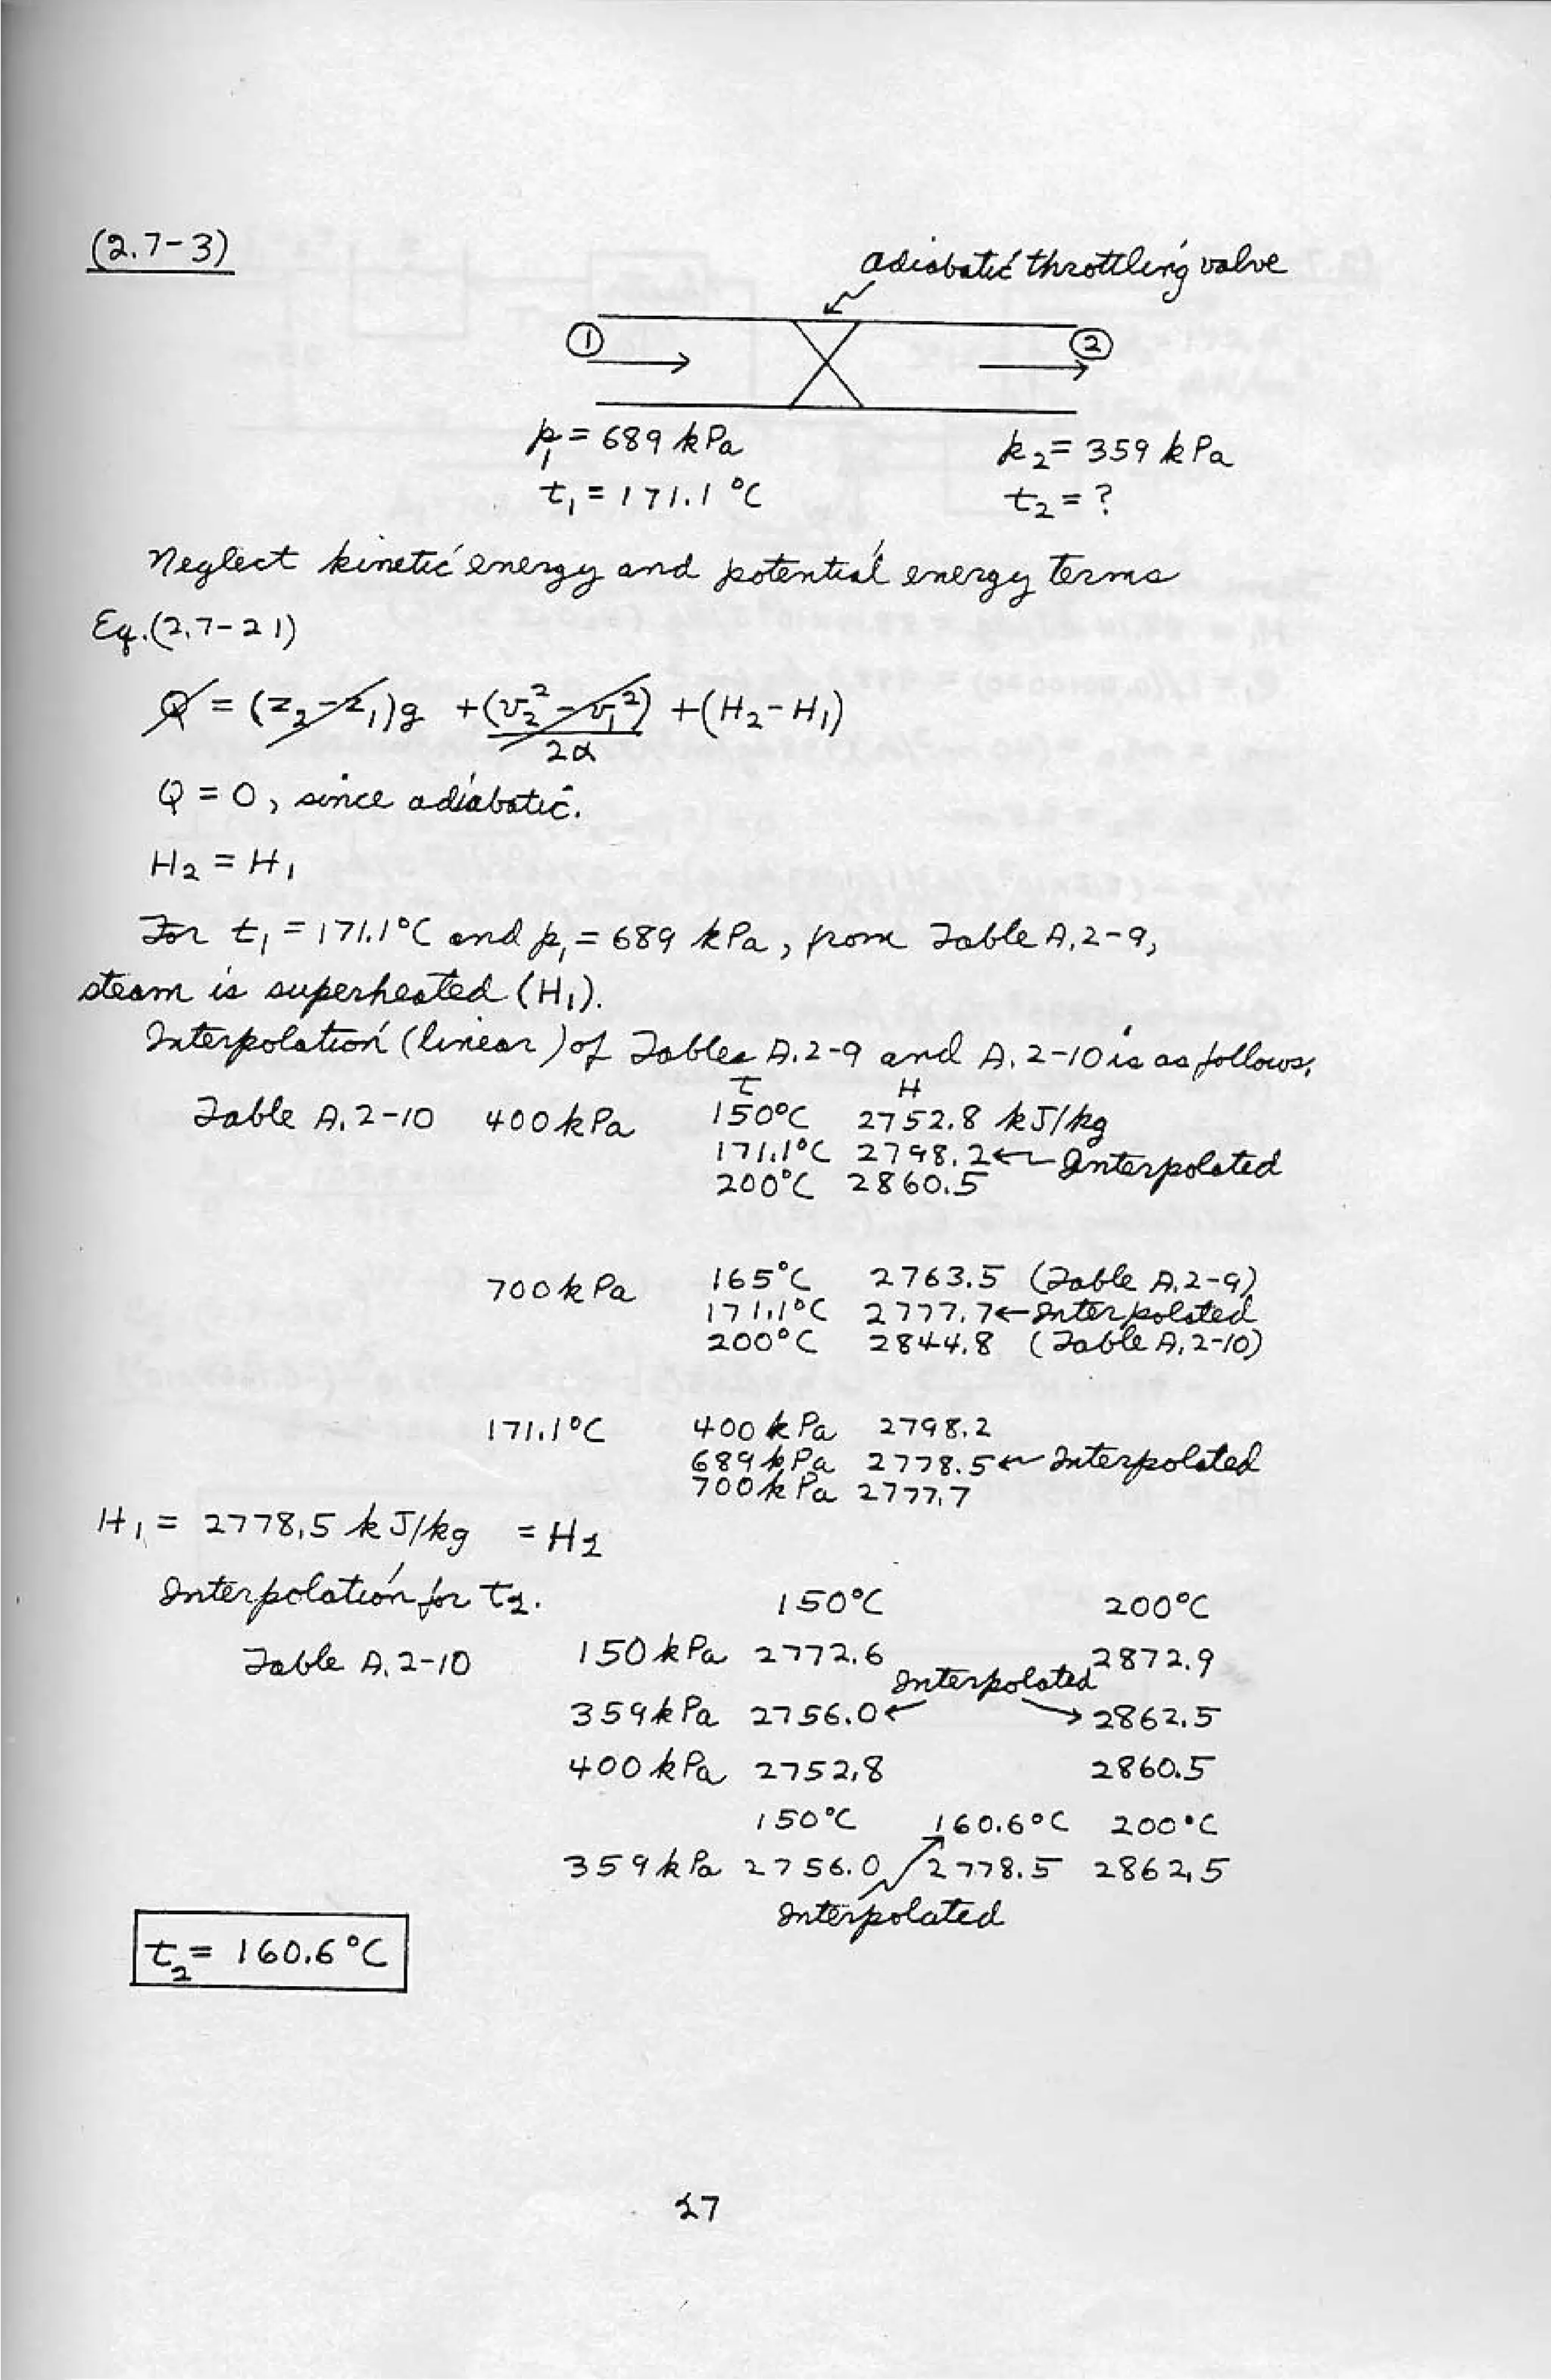 (2.7-3)
adiabatic throttling valve
① ②
p₁ = 689 kPa p₂ = 359 kPa
t₁ = 171.1 °C t₂ = ?
Neglect kinetic energy and potential energy terms
Eq.(2.7-21)
Q = (z₂-z₁)g + (v₂²-v₁²)/2α + (H₂-H₁)
Q = 0, since adiabatic.
H₂ = H₁
For t₁ = 171.1°C and p₁ = 689 kPa, from Table A.2-9,
steam is superheated (H₁).
Interpolation (linear) of Tables A.2-9 and A.2-10 is as follows.
t H
Table A.2-10 400 kPa 150°C 2752.8 kJ/kg
171.1°C 2798.2 ← Interpolated
200°C 2860.5
700 kPa 165°C 2763.5 (Table A.2-9)
171.1°C 2777.7 ← Interpolated
200°C 2844.8 (Table A.2-10)
171.1°C 400 kPa 2798.2
689 kPa 2778.5 ← Interpolated
700 kPa 2777.7
H₁ = 2778.5 kJ/kg = H₂
Interpolation for t₂.
150°C 200°C
Table A.2-10 150 kPa 2772.6 2872.9
Interpolated
359 kPa 2756.0 ← → 2862.5
400 kPa 2752.8 2860.5
150°C 160.6°C 200°C
359 kPa 2756.0 2778.5 2862.5
Interpolated
t₂ = 160.6 °C
27